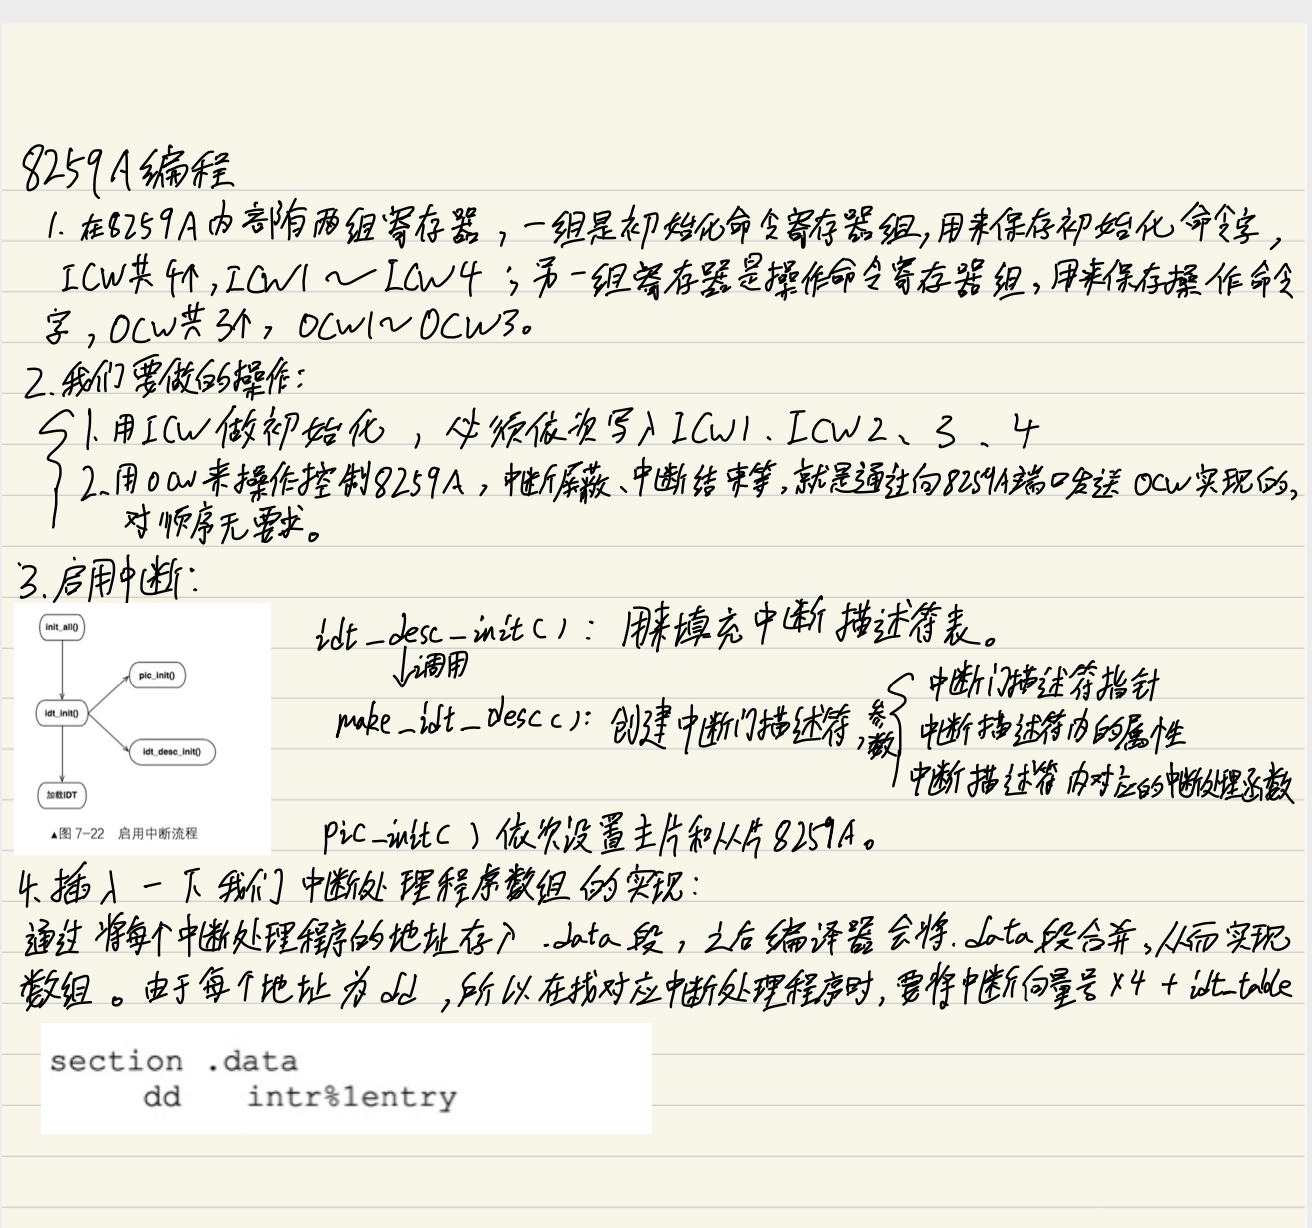 8259A编程
1. 在8259A内部有两组寄存器，一组是初始化命令寄存器组，用来保存初始化命令字，
ICW共4个，ICW1～ICW4；另一组寄存器是操作命令寄存器组，用来保存操作命令
字，OCW共3个，OCW1～OCW3。
2. 我们要做的操作：
1. 用ICW做初始化，必须依次写入ICW1、ICW2、3、4
2. 用ocw来操作控制8259A，中断屏蔽、中断结束等，就是通过向8259A端口发送ocw实现的，
对顺序无要求。
3. 启用中断：
init_all()
pic_init()
idt_init()
idt_desc_init()
加载IDT
▲图 7-22 启用中断流程
idt_desc_init()：用来填充中断描述符表。
↓调用
make_idt_desc()：创建中断门描述符，参数
中断门描述符指针
中断描述符内的属性
中断描述符内对应的中断处理函数
pic_init() 依次设置主片和从片8259A。
4. 插入一下我们中断处理程序数组的实现：
通过将每个中断处理程序的地址存入.data段，之后编译器会将.data段合并，从而实现
数组。由于每个地址为dd，所以在找对应中断处理程序时，要将中断向量号×4 + idt_table
section .data
dd intr%1entry